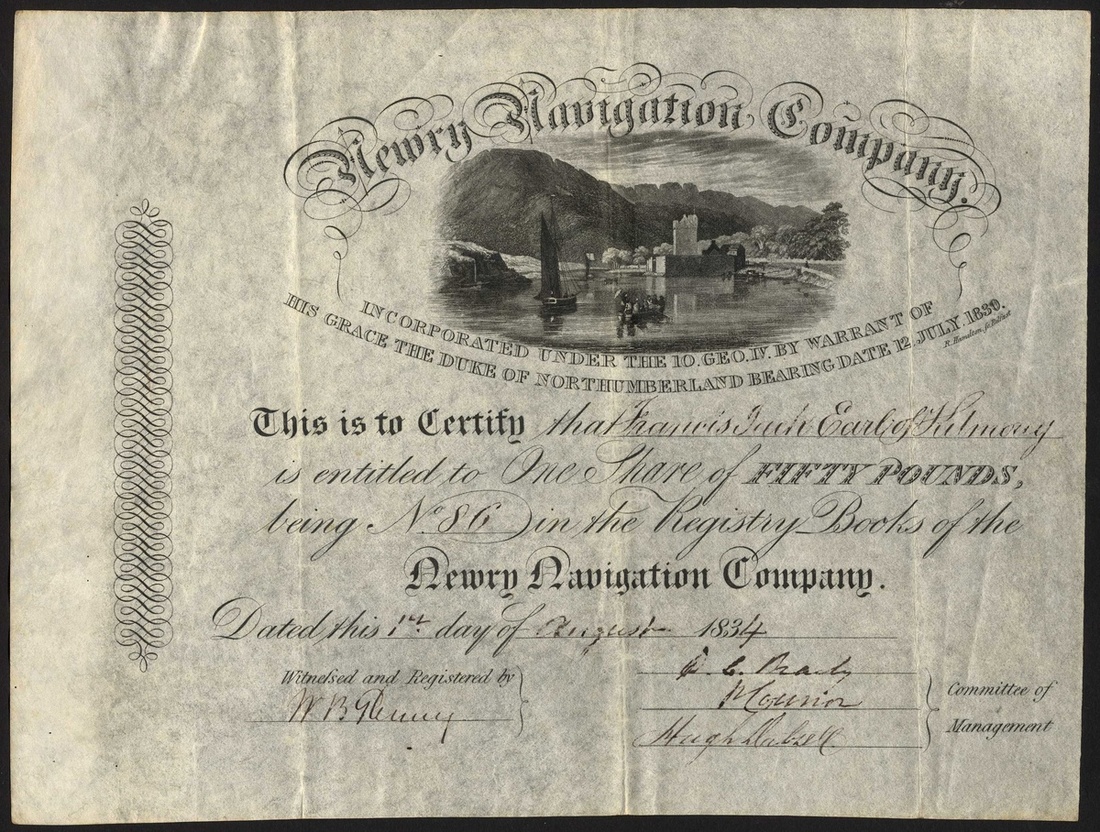 Newry Navigation Company.
INCORPORATED UNDER THE 10. GEO. IV. BY WARRANT OF
HIS GRACE THE DUKE OF NORTHUMBERLAND BEARING DATE 12, JULY, 1830.
This is to Certify that Francis Jack Earl of Kilmorey
is entitled to One Share of FIFTY POUNDS,
being No. 86 in the Registry Books of the
Newry Navigation Company.
Dated this 1st. day of August 1834
Witnessed and Registered by
W. B.
D. C. Brady
Connor
Hugh
Committee of
Management